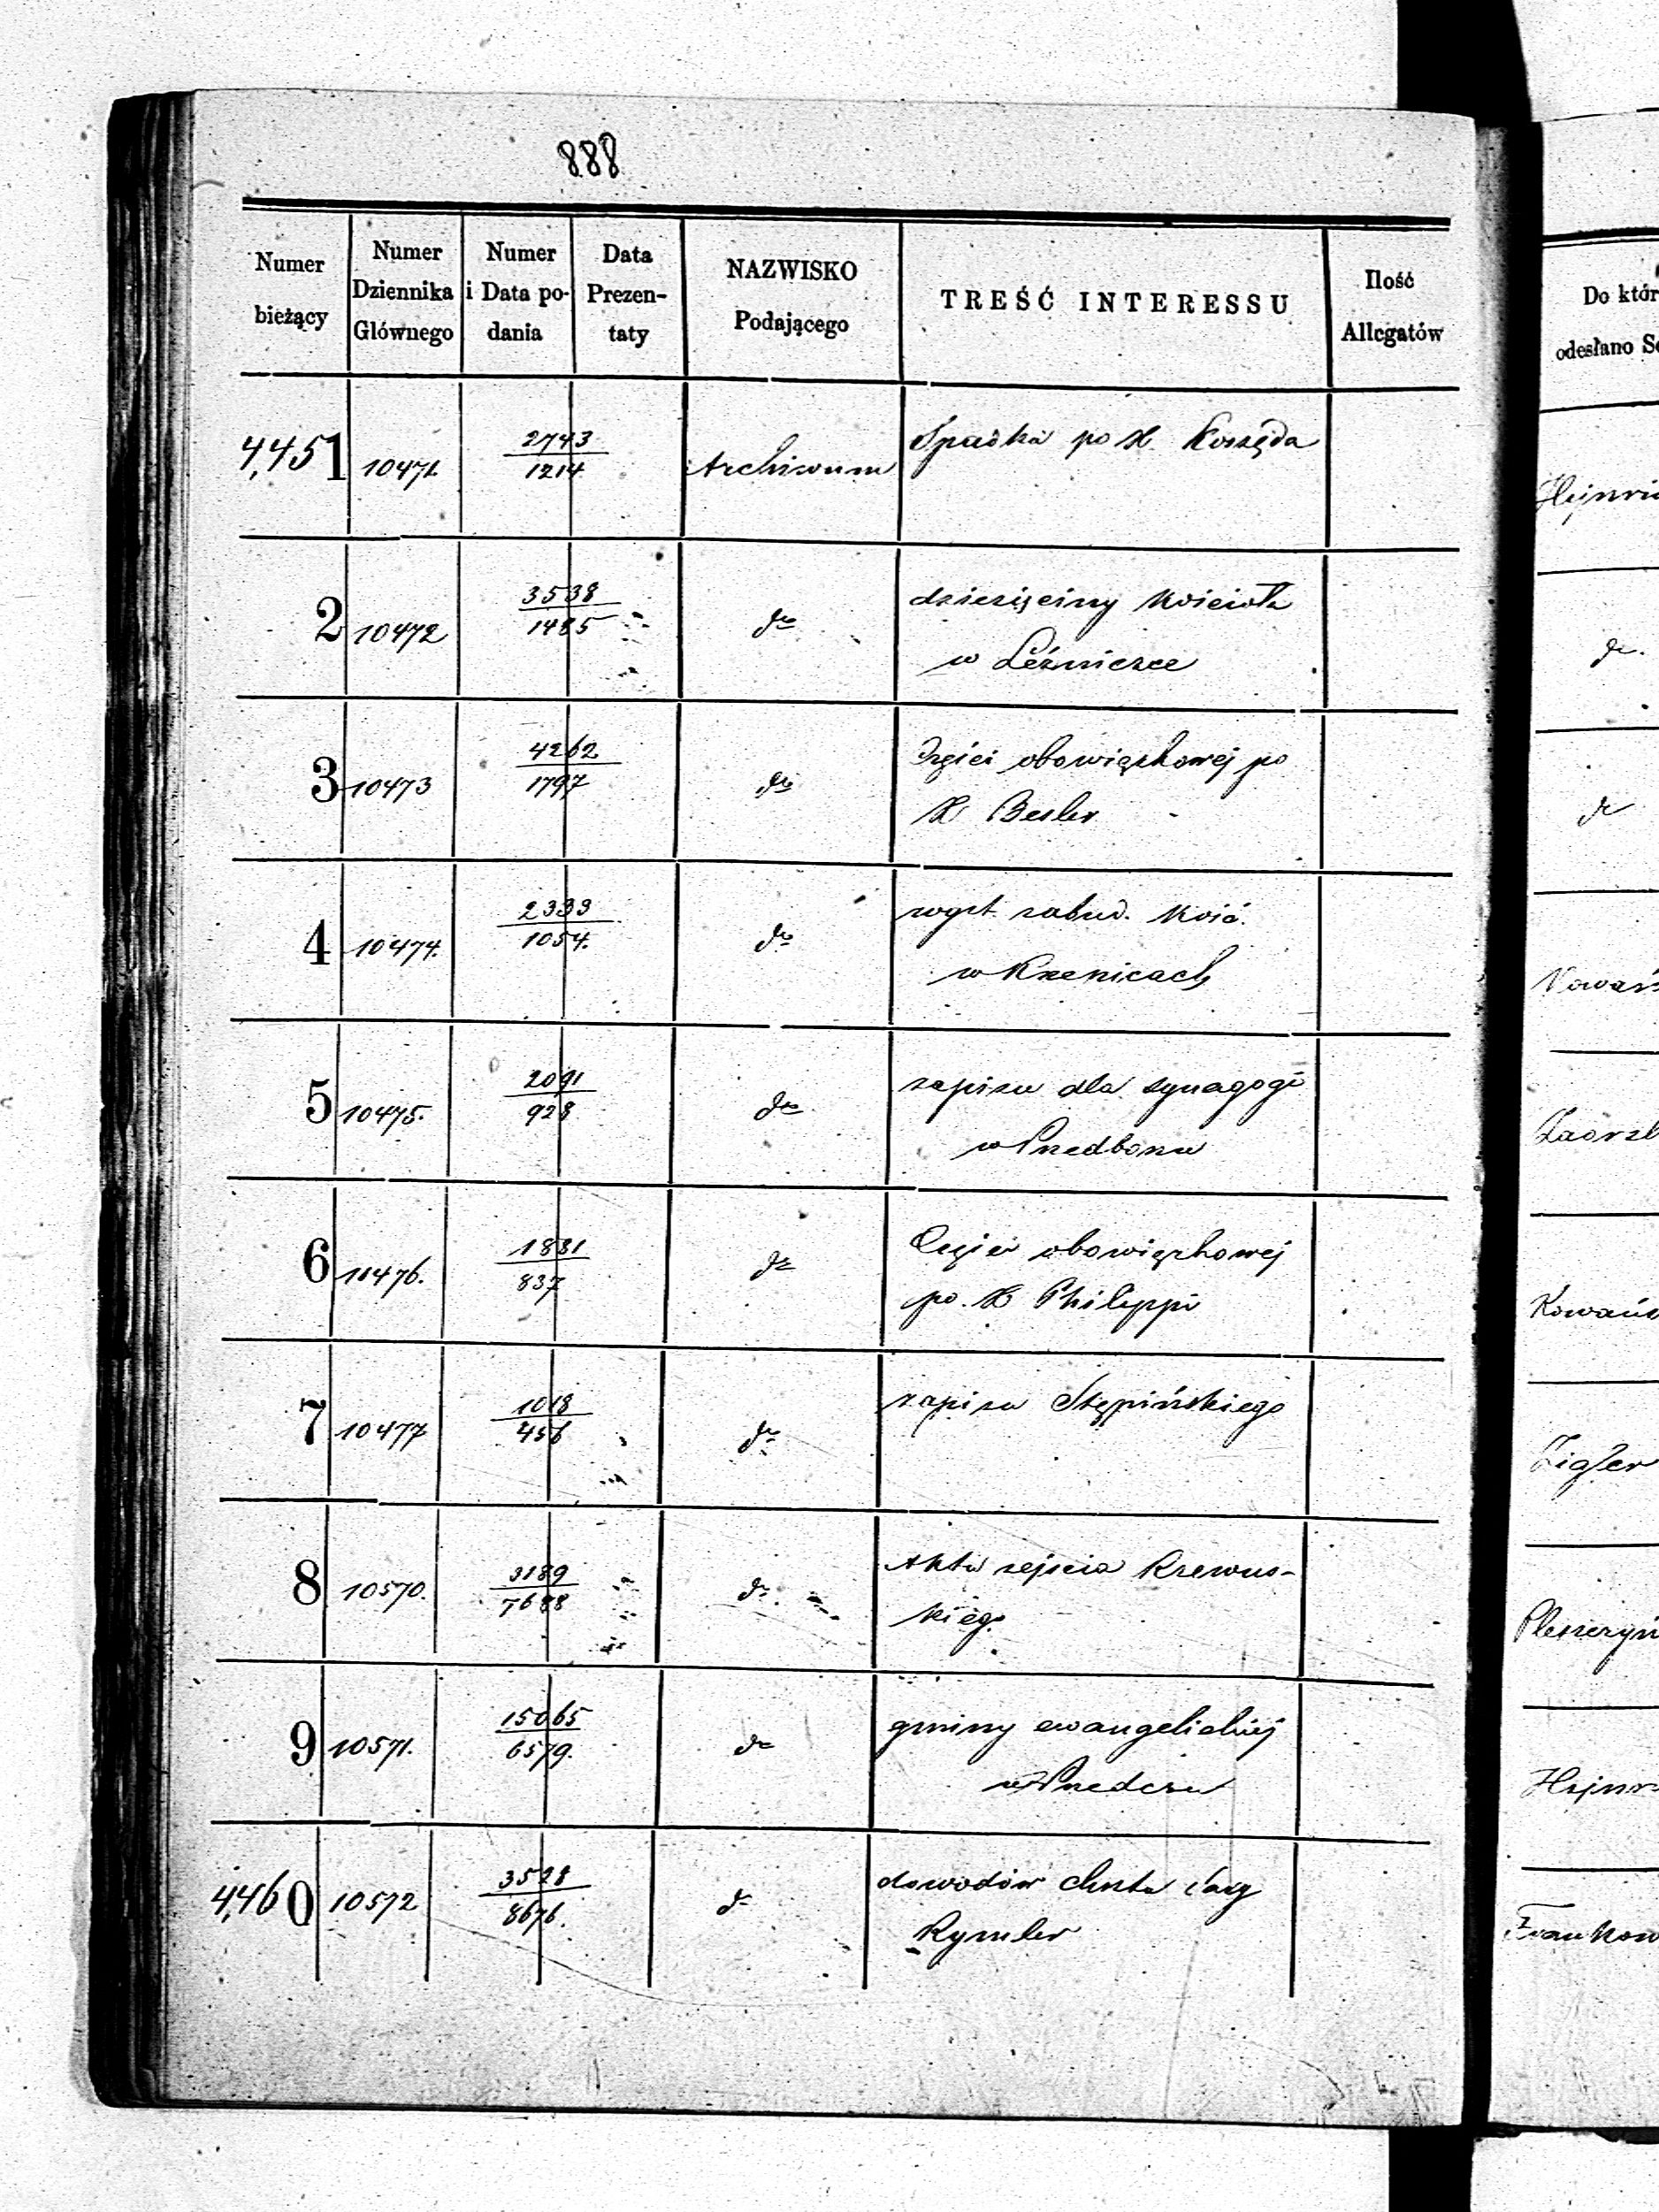 888
Numer bieżący
Numer Dziennika Głównego
Numer i Data podania
Data Prezentaty
NAZWISKO Podającego
TREŚĆ INTERESSU
Ilość Allegatów
Do któr
odesłano Se
4,451 10471. 2743/1214 Archiwum Spadku po X.
Hejnri
2 10472 3538/1485 do dziesięciny Kościoła
w Leźniczce
do.
3 10473 4262/1797 do Części obowiązkowej po
X Besler
do
4 10474. 2333/1054. do wgst. zabud. Kość.
w Krzenicach
Nowań
5 10475. 2091/928 do zapisu dla synagogi
w Przedborzu
6 10476. 1831/837 do Części obowiązkowej
po. X Philippi
Kowańs
7 10477 1018/456 do zapisu Stępińskiego
Zigler
8 10570. 3189/7688 do. Aktu zejścia Rzewus-
kiego.
9 10571. 15065/6579. do gminy ewangelickiej
w Przedczu
Hejnr
4,460 10572 3528/8676. do dowodów
Rymler
Frankow